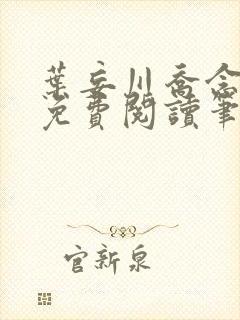 葉妄川喬念
免費閱讀筆
官新泉